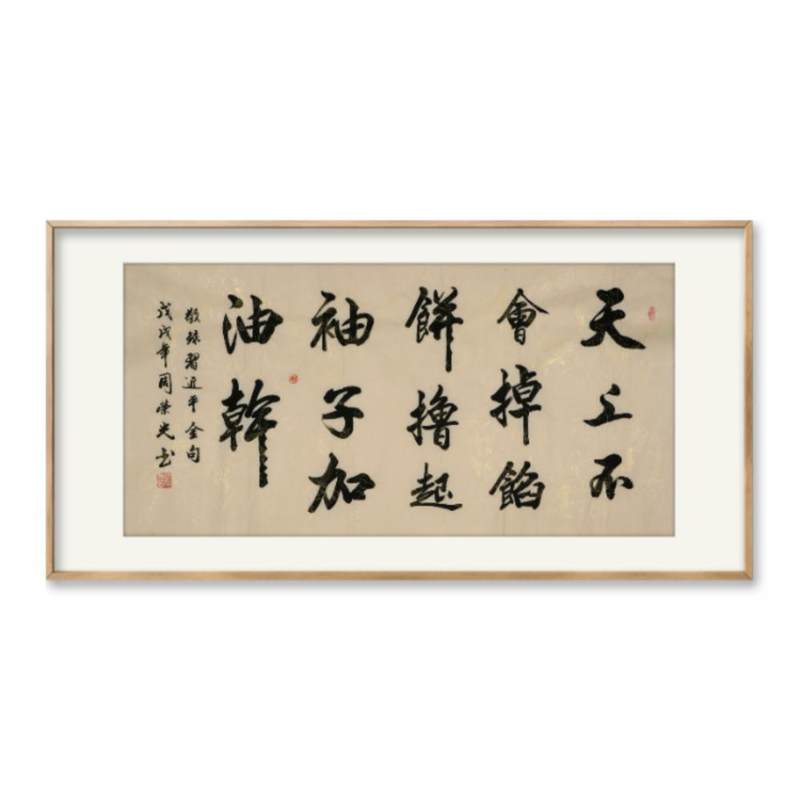 天上不
會掉餡
餅擼起
袖子加
油幹
敬録習近平金句
戊戌年周榮光书